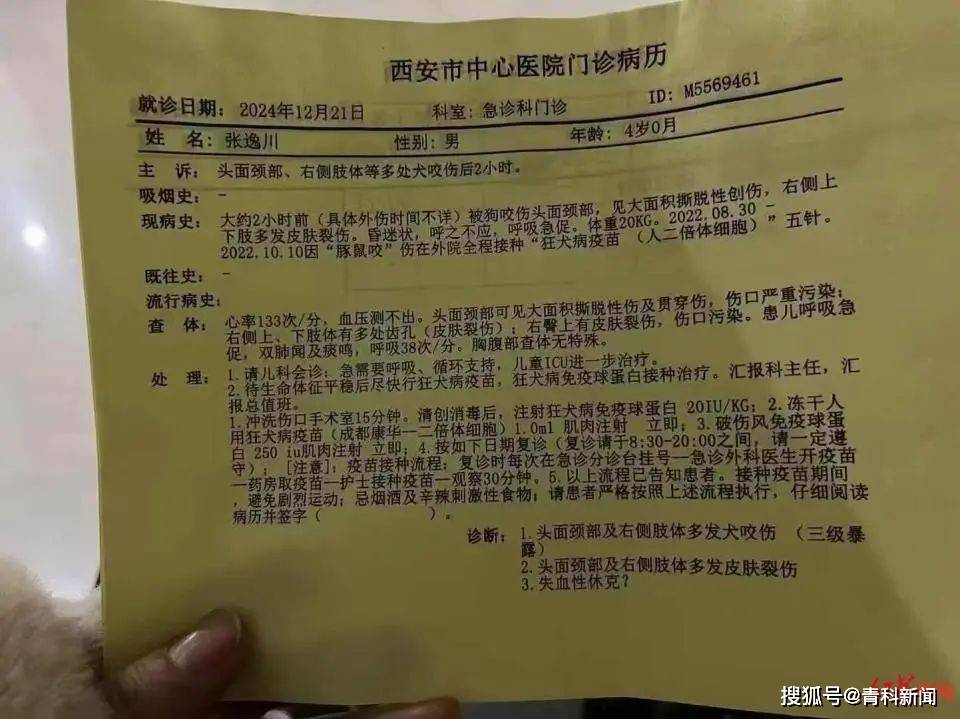 西安市中心医院门诊病历
就诊日期: 2024年12月21日 科室: 急诊科门诊 ID: M5569461
姓 名: 张逸川 性别: 男 年龄: 4岁0月
主 诉: 头面颈部、右侧肢体等多处犬咬伤后2小时。
吸烟史: -
现病史: 大约2小时前（具体外伤时间不详）被狗咬伤头面颈部，见大面积撕脱性创伤，右侧上
下肢多发皮肤裂伤。昏迷状，呼之不应，呼吸急促。体重20KG。2022.08.30 -
2022.10.10因“豚鼠咬”伤在外院全程接种“狂犬病疫苗 （人二倍体细胞）”五针。
既往史: -
流行病史:
查 体: 心率133次/分，血压测不出。头面颈部可见大面积撕脱性伤及贯穿伤，伤口严重污染；
右侧上、下肢体有多处齿孔（皮肤裂伤）；右臀上有皮肤裂伤，伤口污染。患儿呼吸急
促，双肺闻及痰鸣，呼吸38次/分。胸腹部查体无特殊。
处 理: 1.请儿科会诊：急需要呼吸、循环支持，儿童ICU进一步治疗。
2.待生命体征平稳后尽快行狂犬病疫苗，狂犬病免疫球蛋白接种治疗。汇报科主任，汇
报总值班。
1.冲洗伤口手术室15分钟。清创消毒后，注射狂犬病免疫球蛋白 20IU/KG；2.冻干人
用狂犬病疫苗（成都康华一二倍体细胞）1.0ml 肌肉注射 立即；3.破伤风免疫球蛋
白 250 iu肌肉注射 立即；4.按如下日期复诊（复诊请于8:30-20:00之间，请一定遵
守）；[注意]：疫苗接种流程：复诊时每次在急诊分诊台挂号一急诊外科医生开疫苗
一药房取疫苗一护士接种疫苗一观察30分钟。5.以上流程已告知患者。接种疫苗期间
，避免剧烈运动；忌烟酒及辛辣刺激性食物；请患者严格按照上述流程执行，仔细阅读
病历并签字（ ）。
诊断: 1.头面颈部及右侧肢体多发犬咬伤 （三级暴
露）
2.头面颈部及右侧肢体多发皮肤裂伤
3.失血性休克？
搜狐号@青科新闻